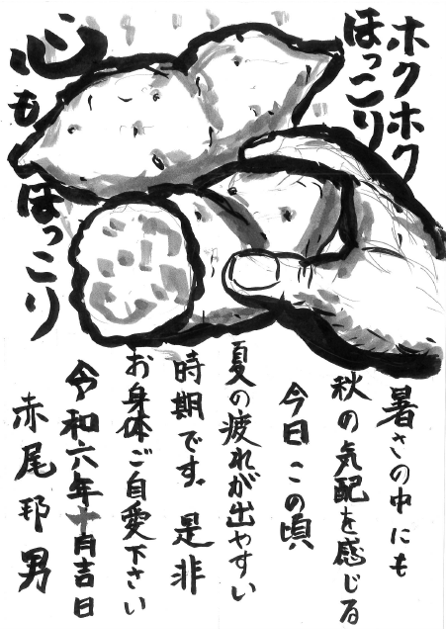 ホクホク
ほっこり
心も
ほっこり
暑さの中にも
秋の気配を感じる
今日この頃
夏の疲れが出やすい
時期です。是非
お身体ご自愛下さい
令和六年十月吉日
赤尾邦男